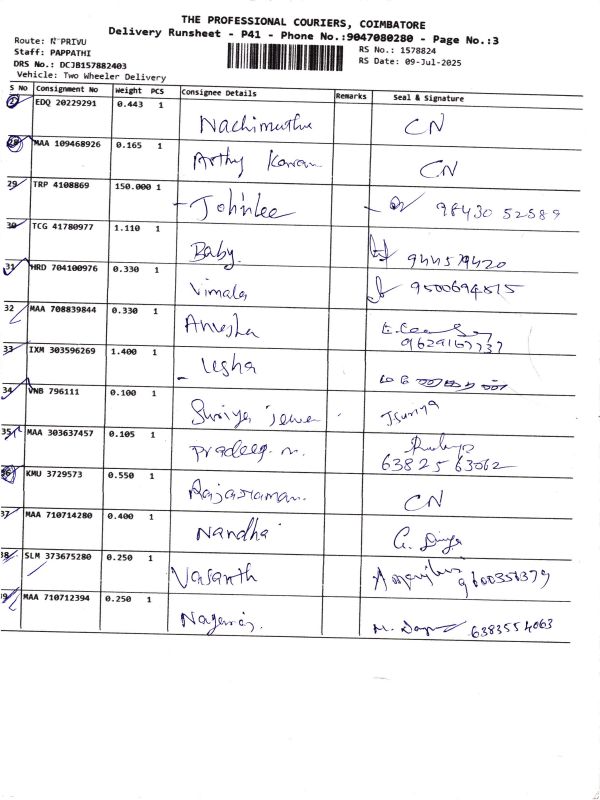 THE PROFESSIONAL COURIERS, COIMBATORE
Delivery Runsheet - P41 - Phone No.:9047080280 - Page No.:3
Route: N PRIVU
RS No.: 1578824
Staff: PAPPATHI
RS Date: 09-Jul-2025
DRS No.: DCJB157882403
Vehicle: Two Wheeler Delivery
S No Consignment No Weight PCS Consignee Details Remarks Seal & Signature
27 EDQ 20229291 0.443 1 Nachimuthu CN
28 MAA 109468926 0.165 1 Arthy CN
29 TRP 4108869 150.000 1 Johnlee 98430 52589
30 TCG 41780977 1.110 1 Baby.
31 HRD 704100976 0.330 1 Vimala 9500694815
32 MAA 708839844 0.330 1 Anusha
33 IXM 303596269 1.400 1 Usha
34 VNB 796111 0.100 1 Suriya
35 MAA 303637457 0.105 1 Pradeep. n. 63825 63062
36 KMU 3729573 0.550 1 Rajaraman. CN
37 MAA 710714280 0.400 1 Nandha G. Divya
38 SLM 373675280 0.250 1 Vasanth 9600351379
39 MAA 710712394 0.250 1 Nagaraj. 6383554063